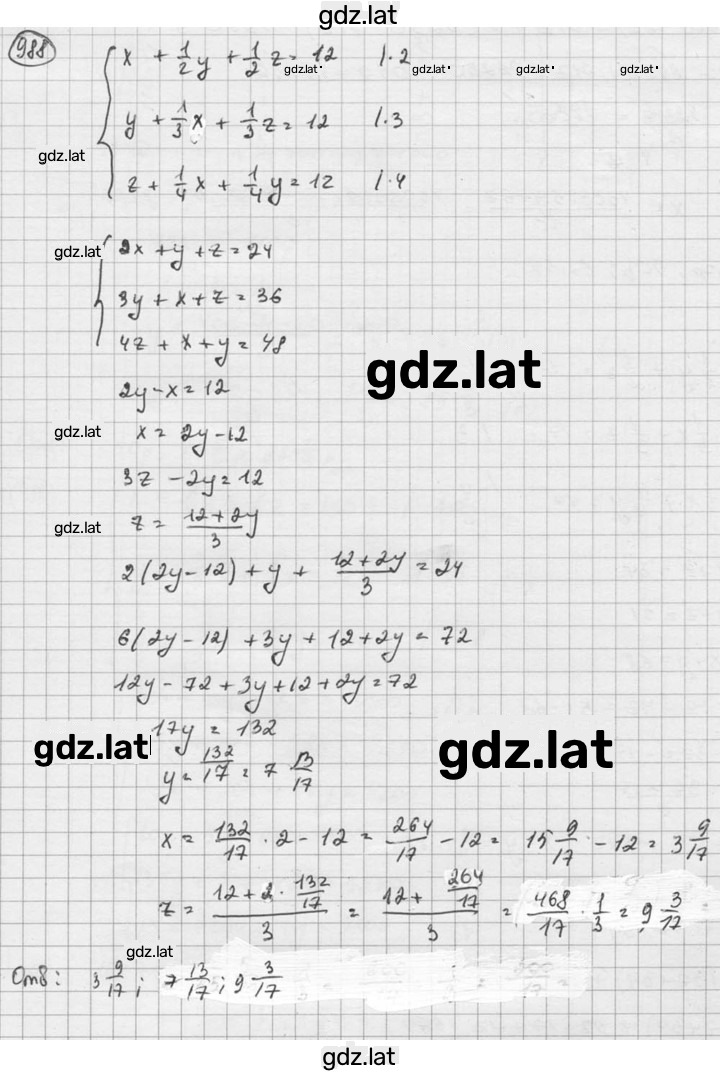 gdz.lat
988
x + 1/2 y + 1/2 z = 12 | · 2
gdz.lat gdz.lat gdz.lat gdz.lat
y + 1/3 x + 1/3 z = 12 | · 3
gdz.lat
z + 1/4 x + 1/4 y = 12 | · 4
gdz.lat 2x + y + z = 24
3y + x + z = 36
4z + x + y = 48
gdz.lat
2y - x = 12
gdz.lat x = 2y - 12
3z - 2y = 12
gdz.lat z = (12 + 2y)/3
2(2y - 12) + y + (12 + 2y)/3 = 24
6(2y - 12) + 3y + 12 + 2y = 72
12y - 72 + 3y + 12 + 2y = 72
17y = 132
gdz.lat gdz.lat
y = 132/17 = 7 13/17
x = 132/17 · 2 - 12 = 264/17 - 12 = 15 9/17 - 12 = 3 9/17
z = (12 + 2 · 132/17)/3 = (12 + 264/17)/3 = 468/17 · 1/3 = 9 3/17
gdz.lat
Отв: 3 9/17; 7 13/17; 9 3/17
gdz.lat